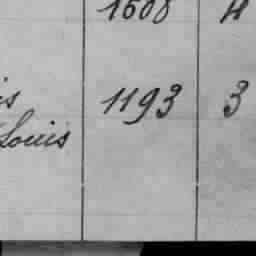 1608 H
is 1193 3
Louis